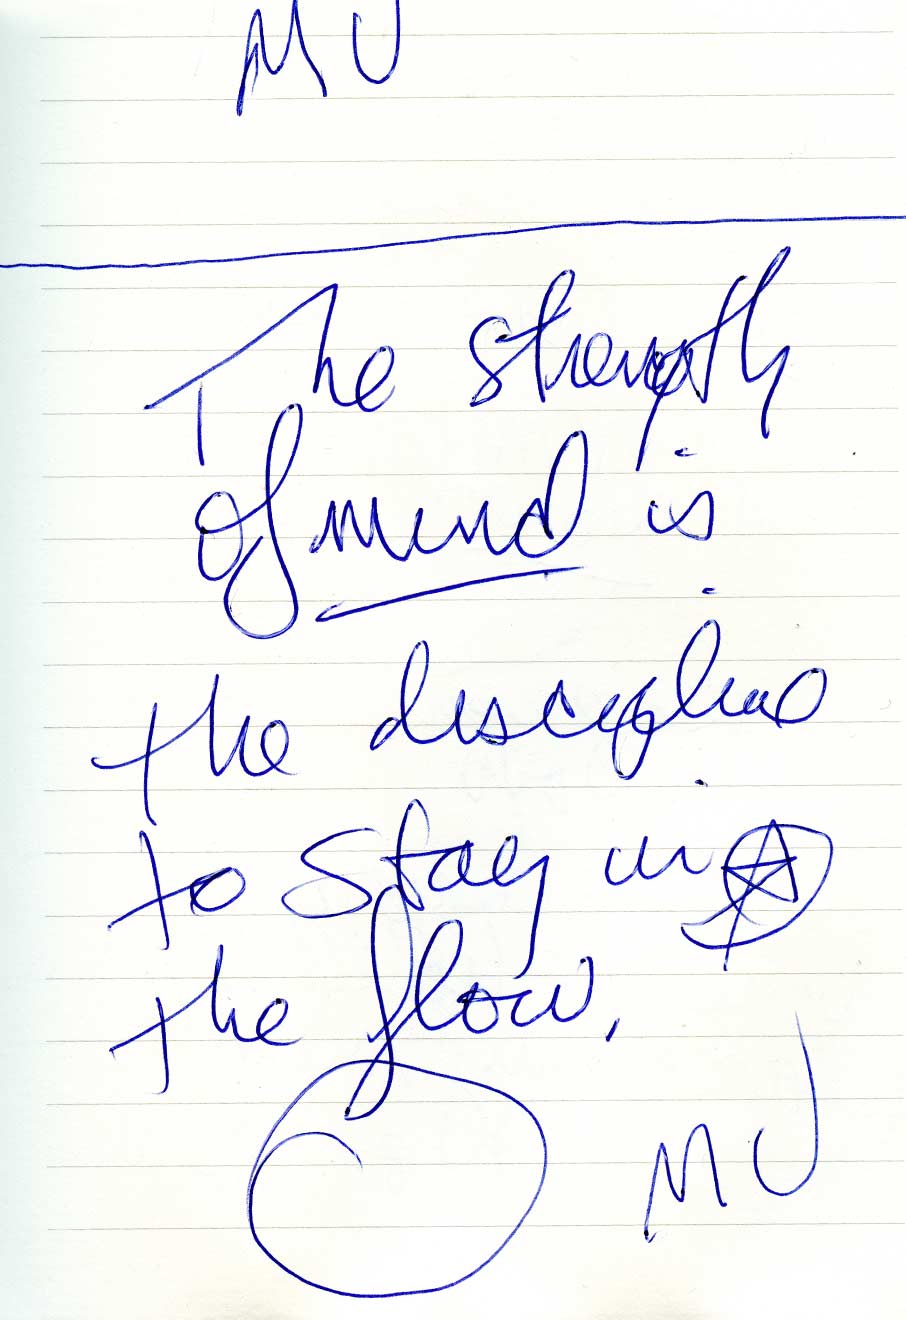 MJ
The strength
of mind is
the discipline
to stay in
the flow.
MJ